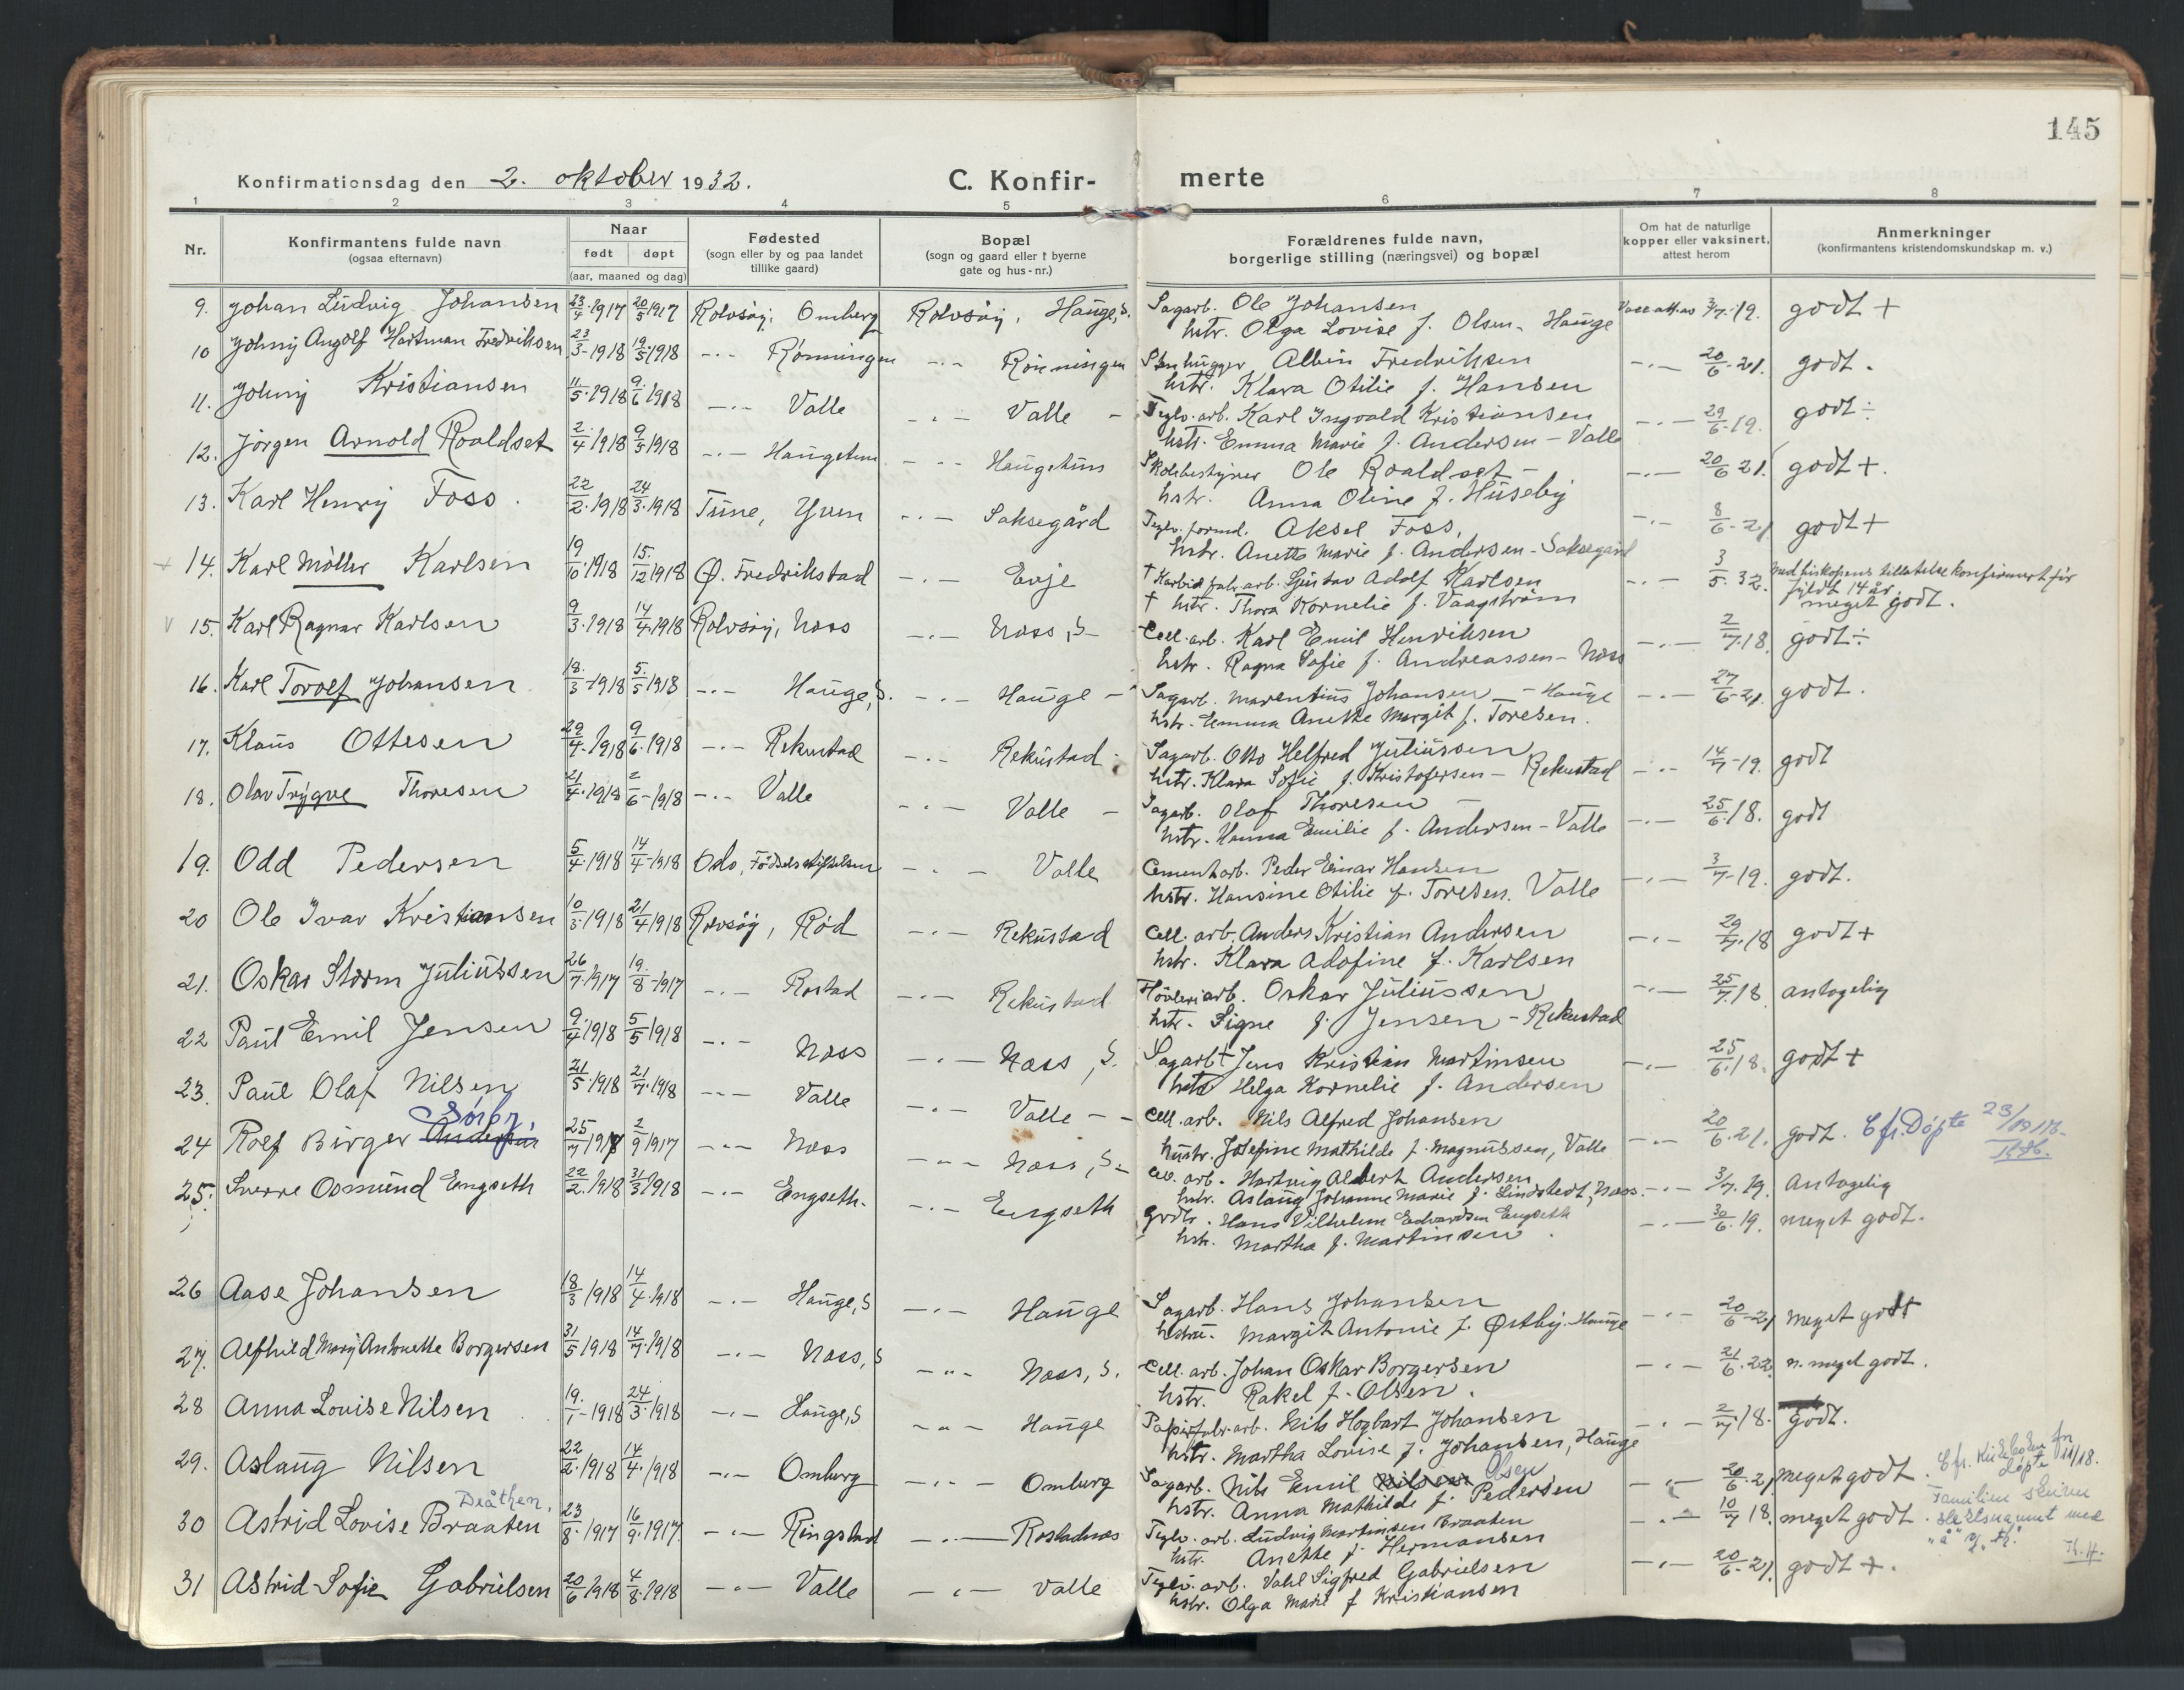 145
Konfirmationsdag den 2. oktober 1932. C. Konfir- merte
1 2 3 4 5 6 7 8
Nr. Konfirmantens fulde navn (ogsaa efternavn) Naar født døpt (aar, maaned og dag) Fødested (sogn eller by og paa landet tillike gaard) Bopæl (sogn og gaard eller i byerne gate og hus-nr.) Forældrenes fulde navn, borgerlige stilling (næringsvei) og bopæl Om hat de naturlige kopper eller vaksinert, attest herom Anmerkninger (konfirmantens kristendomskundskap m. v.)
9. Johan Ludvig Johansen 23/4 1917 20/5 1917 Rolvsøy, Omberg Rolvsøy, Hauge, S. Sagarb. Ole Johansen 3/7.19. godt +
hstr. Olga Lovise f. Olsen - Hauge
10 Johny Angolf Hartman Fredriksen 23/3-1918 19/5 1918 -"- Rønningen -"- Rønningen Stenhugger Albin Fredriksen -"- 20/6.21. godt.
hstr. Klara Otilie f. Hansen
11. Johny Kristiansen 11/5.1918 9/6 1918 -"- Valle -"- Valle - Teglv.arb. Karl Ingvald Kristiansen -"- 29/6.19. godt ÷
hstr. Emma Marie f. Andersen - Valle
12. Jørgen Arnold Roaldset 2/4 1918 9/5 1918 -"- Haugetun -"- Haugetuns Skolebestyrer Ole Roaldset - -"- 20/6 21. godt +.
hstr. Anna Oline f. Huseby
13. Karl Henry Foss. 22/2.1918 24/3.1918 Tune, Yven -"- Saksegård Teglv.formd. Aksel Foss, -"- 8/6.21 godt +
hstr. Anette Marie f. Andersen - Saksegård
14. Karl Møller Karlsen 19/6.1918 15/12 1918 Ø. Fredrikstad -"- Evje † Karbidfabr.arb. Gustav Adolf Karlsen -"- 3/5.32. med biskopens tillatelse konfirmert før
fyldt 14 år.
† hstr. Thora Kornelie f. Vaagstrøm meget godt.
15. Karl Ragnar Karlsen 9/3.1918 14/4.1918 Rolvsøy, Næss -"- Næss, S- Cell.arb. Karl Emil Henriksen -"- 2/7.18. godt ÷
hstr. Ragna Sofie f. Andreassen - Næss
16. Karl Torolf Johansen 18/3-1918 5/5 1918 -"- Hauge, S. -"- Hauge -" Sagarb. Marentius Johansen - Hauge -"- 27/6-21. godt.
hstr. Emma Anette Margit f. Toresen.
17. Klaus Ottesen 29/4.1918 9/6.1918 -"- Rekustad -"- Rekustad - Sagarb. Otto Helfred Juliussen -"- 14/7-19. godt
hstr. Klara Sofie f. Kristofersen - Rekustad
18. Olav Trygve Thoresen 21/4.1918 2/6-1918 -"- Valle -"- Valle - Sagarb. Olaf Thoresen - -"- 25/6.18. godt
hstr. Hanna Emilie f. Andersen - Valle
19. Odd Pedersen 5/4.1918 14/4-1918 Oslo, Fødselsstiftelsen -"- Valle Cementarb. Peder Einar Hansen -"- 3/7-19. godt.
hstr. Hansine Otilie f. Toresen. Valle
20 Ole Ivar Kristiansen 10/3.1918 21/4 1918 Rolvsøy, Rød -"- Rekustad Cell.arb. Anders Kristian Andersen -"- 29/7.18 godt +
hstr. Klara Adofine f. Karlsen
21. Oskar Storm Juliussen 26/7.1917 19/8-1917 -"- Rostad -"- Rekustad Høvleriarb. Oskar Juliussen -"- 25/7.18 antagelig
hstr. Signe f. Jensen - Rekustad
22 Paul Emil Jensen 9/4.1918 5/5 1918 -"- Næss -"- Næss, S. Sagarb † Jens Kristian Martinsen -"- 25/6.18. godt +
hstr Helga Kornelie f. Andersen
23. Paul Olaf Nilsen 21/5.1918 21/7.1918 -"- Valle -"- Valle - - Cell.arb. Nils Alfred Johansen -"- 20/6.21. godt. Cfr. Døpte
hustr. Josefine Mathilde f. Magnussen, Valle
Sørby,
24 Rolf Birger Andersen 25/7 1917 2/9 1917 -"- Næss -"- Næss, S- Cell. arb. Hartvig Albert Andersen -"- 3/7.19. Antagelig
hstr. Aslaug Johanne Marie f. Lindstedt, Næss
25. Sverre Osmund Engseth 22/2.1918 31/3.1918 -"- Engseth. -"- Engseth Grdbr. Hans Vilhelm Edvardsen Engseth -"- 30/6.19. meget godt.
hstr. Martha f. Martinsen.
26 Aase Johansen 18/3 1918 14/4.1918 -"- Hauge, S -"- Hauge Sagarb. Hans Johansen -"- 20/6-21 meget godt
hustru. Margit Antonie f. Østby. Hauge
27. Alfhild Mary Antonette Borgersen 31/5 1918 14/7.1918 -"- Næss, S -"- Næss, S. Cell.arb. Johan Oskar Borgersen -"- 21/6.22. n. meget godt.
hstr. Rakel f. Olsen.
28 Anna Louise Nilsen 19/1-1918 24/3.1918 -"- Hauge, S -"- Hauge Papirfabr.arb. Nils Hogbart Johansen -"- 2/7.18. godt.
hstr. Martha Lovise f. Johansen, Hauge
29. Aslaug Nilsen 22/2.1918 14/4.1918 -"- Omberg -"- Omberg Sagarb. Nils Emil Nilsen Olsen -"- 20/6.21 meget godt. Cfr. Kirkeboken for
Døpte 11/18.
hstr. Anna Mathilde f. Pedersen
Bråthen.
30 Astrid Lovise Braaten 23/8.1917 16/9.1917 -"- Ringstad -"- Rostadnæs Teglv.arb. Ludvig Martinsen Braaten -"- 10/7 18. meget godt. Familien skriver
slektsnavnet med
"å" og "th".
Th. H.
hstr. Anette f. Hermansen
31 Astrid Sofie Gabrielsen 20/6 1918 4/8.1918 -"- Valle -"- Valle Teglv.arb. Vahl Sigfred Gabrielsen -"- 20/6-21. godt +.
hstr. Olga Marie f Kristiansen